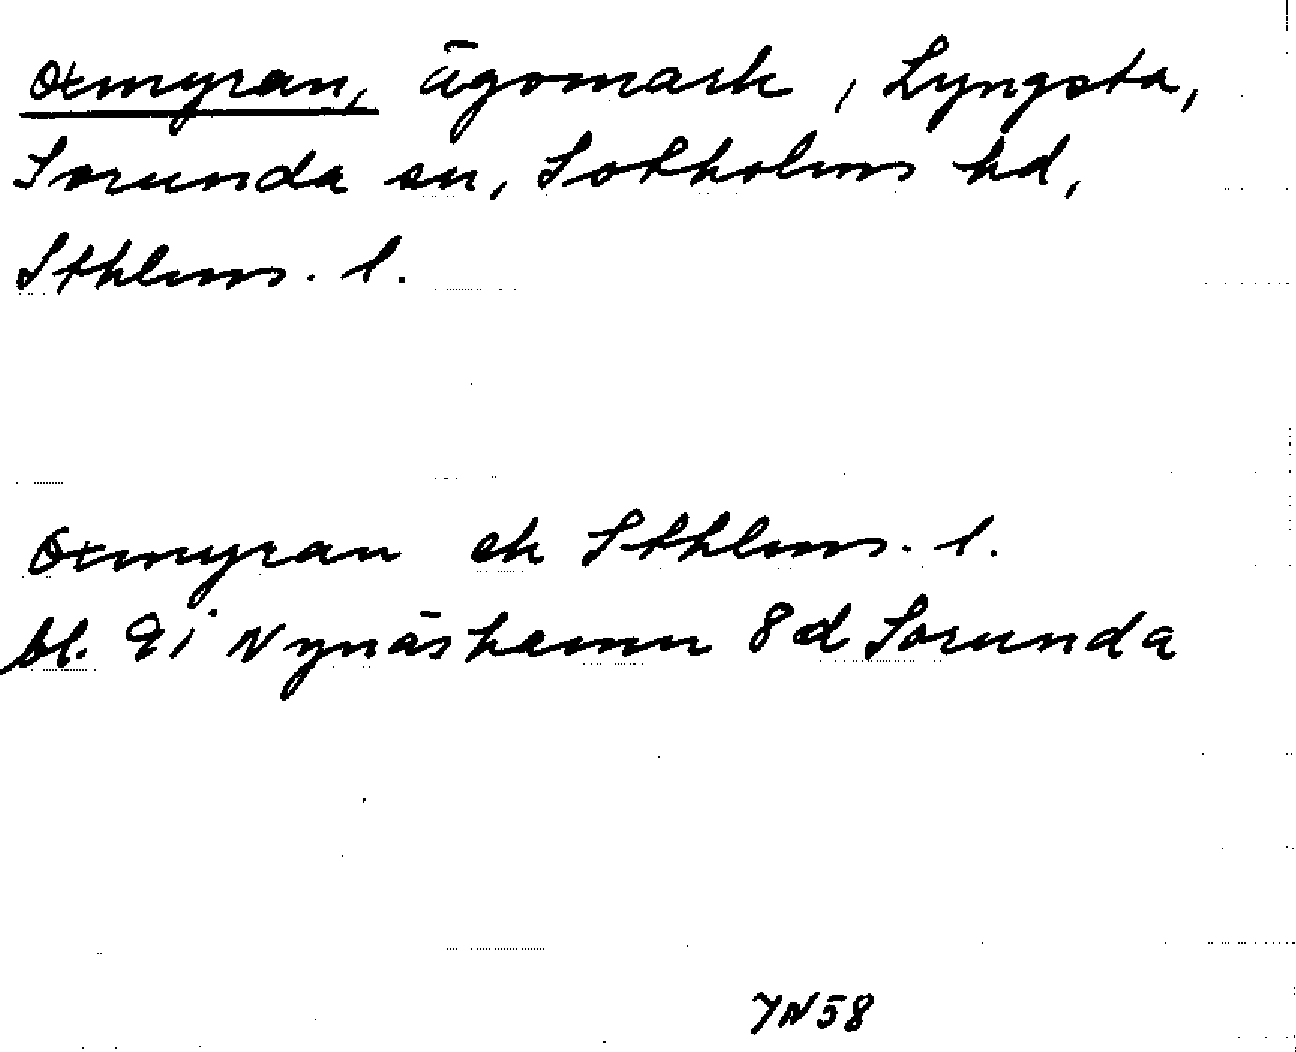 Oxmyran, ägomark, Lyngsta,
Sorunda sn, Sotholms hd,
Sthlms. l.
Oxmyran ek Sthlms. l.
bl. 9i Nynäshamn 8d Sorunda
YN58